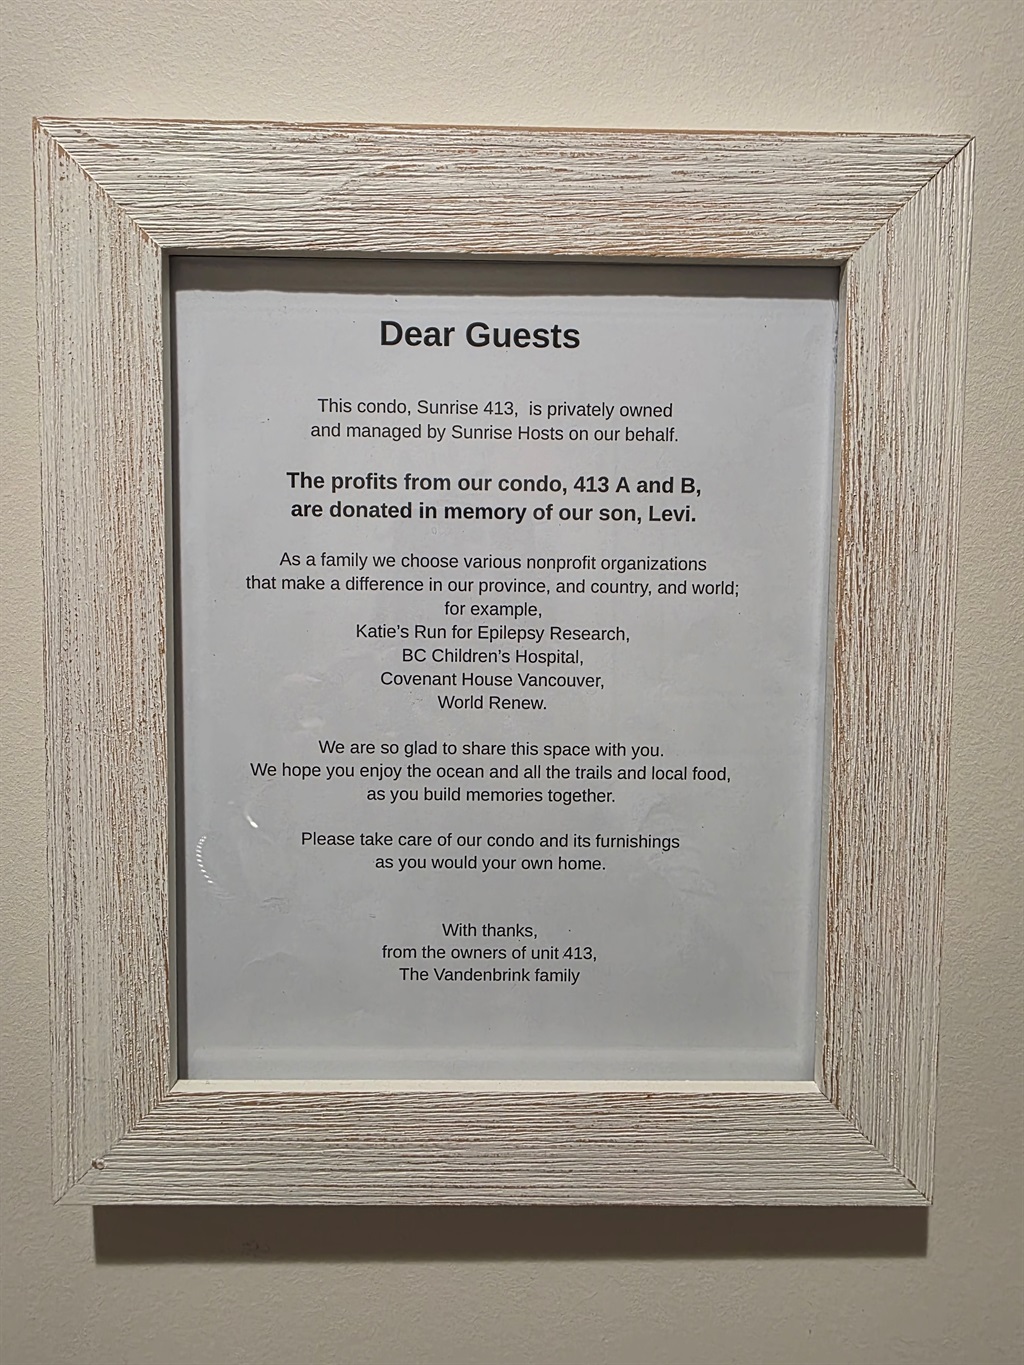 Dear Guests
This condo, Sunrise 413, is privately owned
and managed by Sunrise Hosts on our behalf.
The profits from our condo, 413 A and B,
are donated in memory of our son, Levi.
As a family we choose various nonprofit organizations
that make a difference in our province, and country, and world;
for example,
Katie's Run for Epilepsy Research,
BC Children's Hospital,
Covenant House Vancouver,
World Renew.
We are so glad to share this space with you.
We hope you enjoy the ocean and all the trails and local food,
as you build memories together.
Please take care of our condo and its furnishings
as you would your own home.
With thanks,
from the owners of unit 413,
The Vandenbrink family